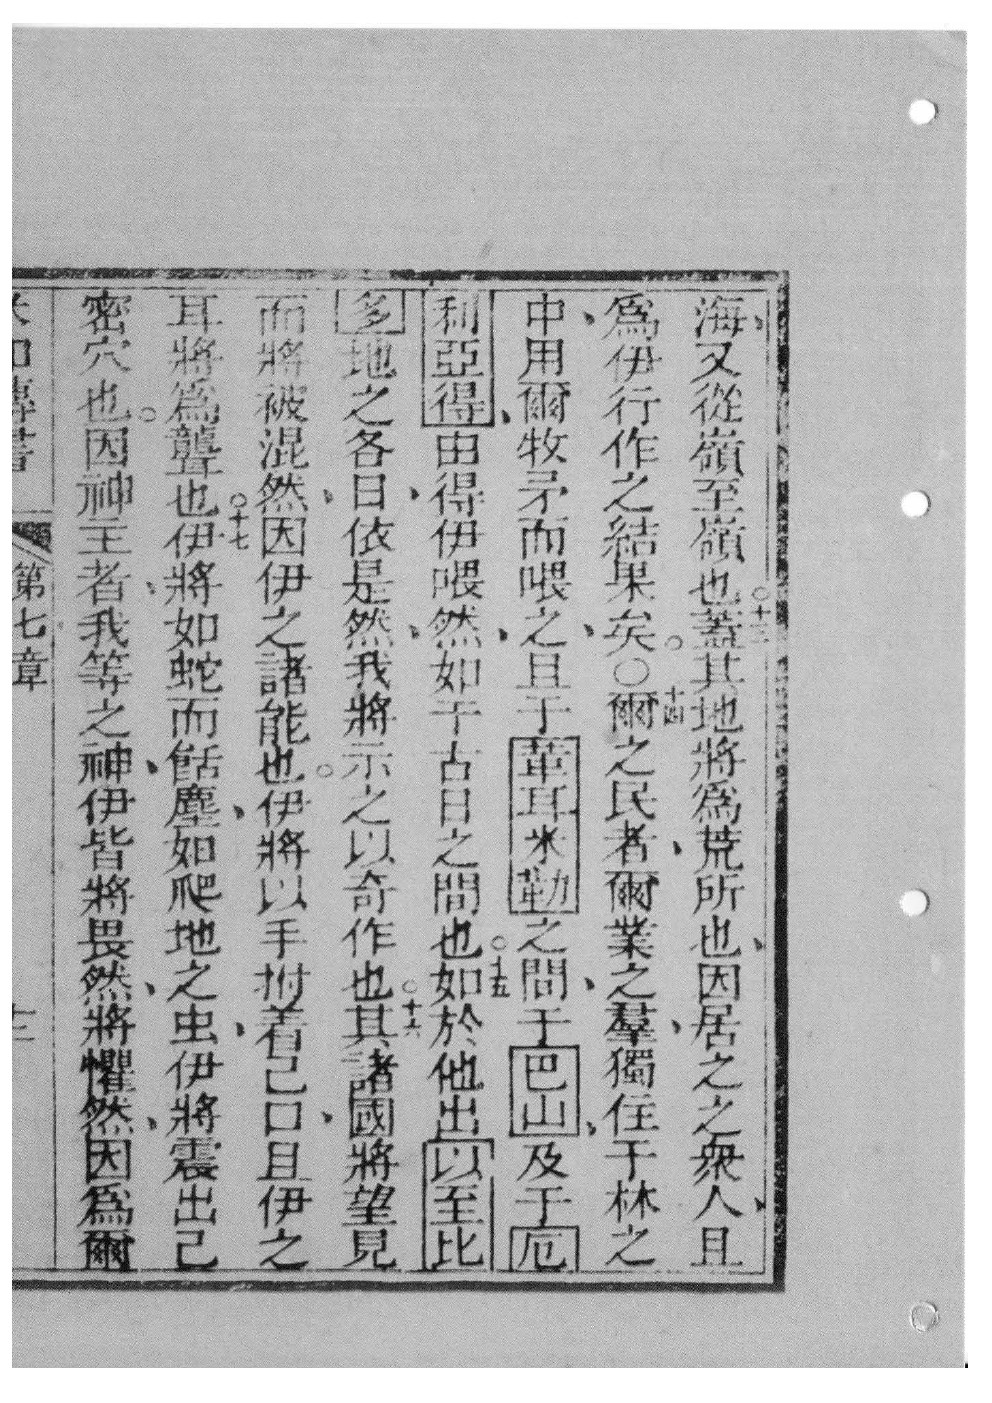 海、又從嶺至嶺也○十三蓋其地將為荒所也、因居之之衆人、且
為伊行作之結果矣。○十四爾之民者、爾業之羣、獨住于林之
中、用爾牧矛而喂之、且于葦耳米勒之間、于巴山、及于厄
利亞得、由得伊喂然、如千古日之間也○十五如於他出以至比
多地之各日、依是然、我將示之以奇作也○十六其諸國將望見
而將被混然、因伊之諸能也。伊將以手拊着己口、且伊之
耳將為聾也○十七伊將如蛇而餂塵、如爬地之虫、伊將震出己
密穴也。因神主者、我等之神、伊皆將畏然、將懼然、因為爾
米加傳書 第七章